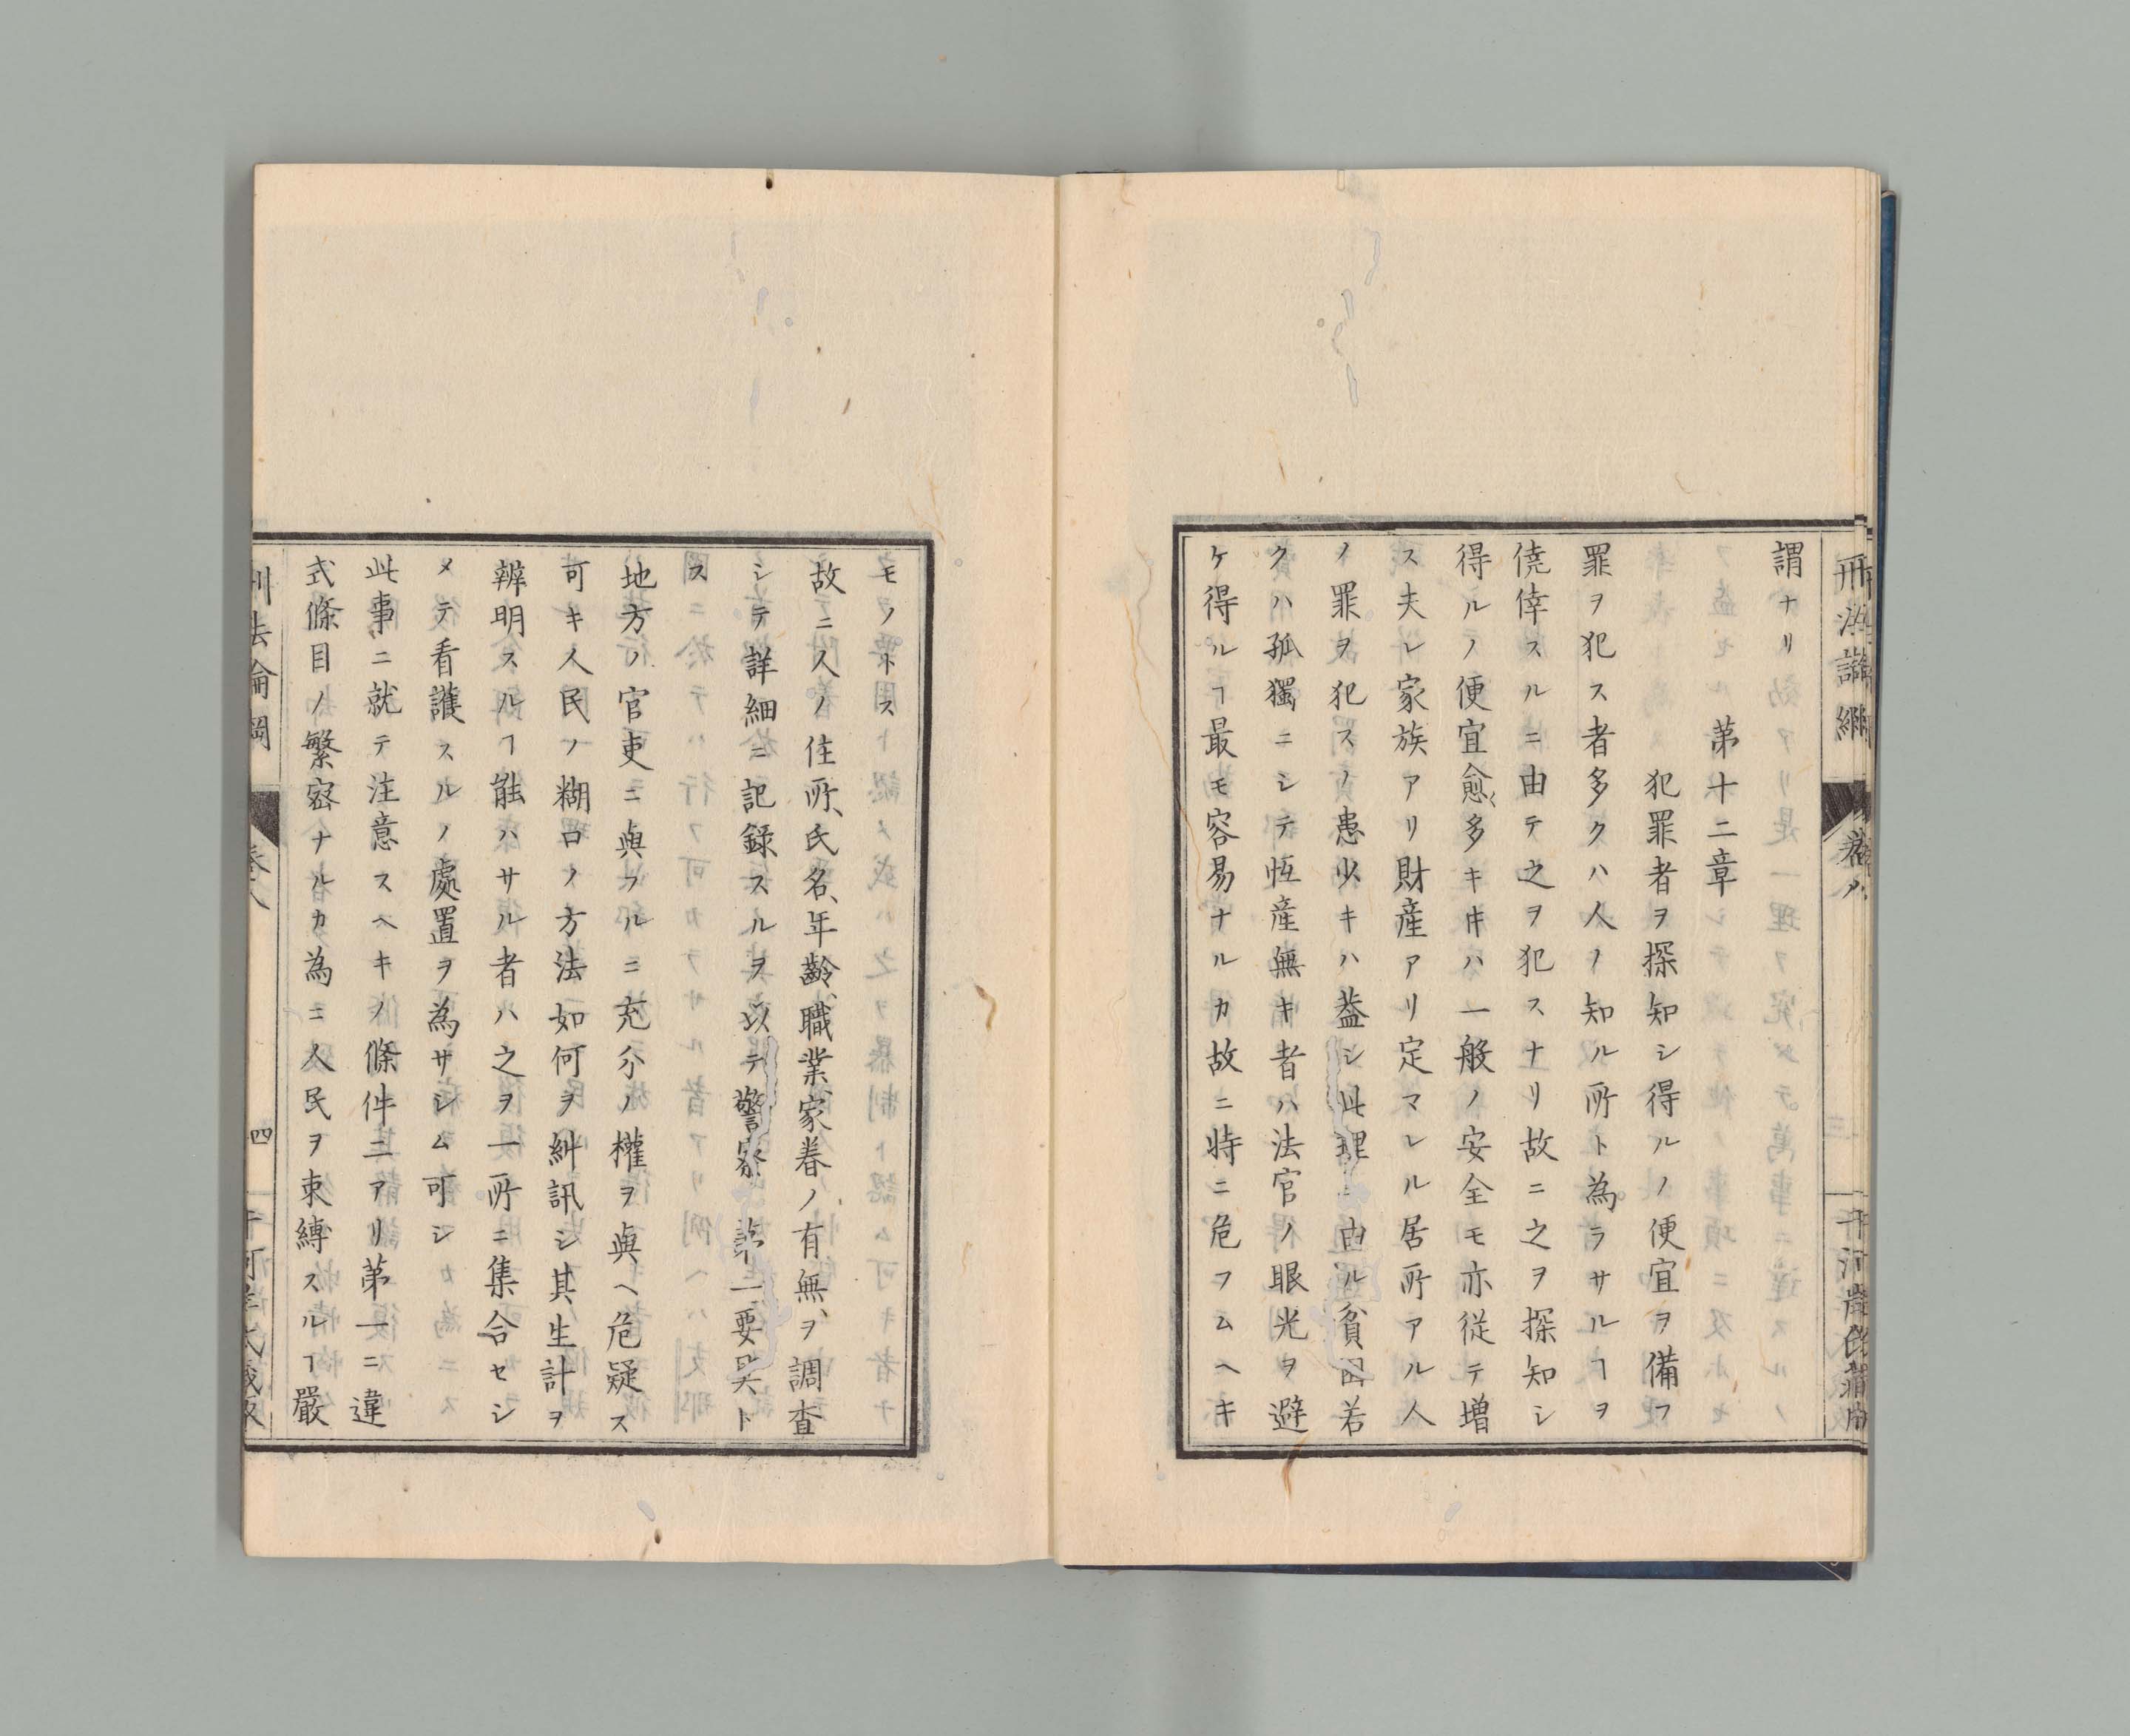 謂ナリ
第十二章
犯罪者ヲ探知シ得ルノ便宜ヲ備フ
罪ヲ犯ス者多クハ人ノ知ル所ト為ラサルヿヲ
僥倖スルニ由テ之ヲ犯スナリ故ニ之ヲ探知シ
得ルノ便宜愈〻多キ𪜈ハ一般ノ安全モ亦従テ増
ス夫レ家族アリ財産アリ定マレル居所アル人
ノ罪ヲ犯スノ患少キハ葢シ此理ニ由ル貧困若
クハ孤獨ニシテ恆産無キ者ハ法官ノ眼光ヲ避
ケ得ルヿ最モ容易ナルカ故ニ特ニ危フムヘキ
モノトス
故ニ人ノ住所、氏名、年齡、職業、家眷ノ有無、ヲ調査
シテ詳細ニ記録スルヲ以テ警察第一要具ト
ス
地方ノ官吏ニ與フルニ充分ノ權ヲ與ヘ危疑ス
可キ人民ノ糊口ノ方法如何ヲ糾訊シ其生計ヲ
辨明スルヿ能ハサル者ハ之ヲ一所ニ集合セシ
メテ看護スルノ處置ヲ為サシム可シ
此事ニ就テ注意スヘキノ條件二アリ第一ニ違
式條目ノ繁密ナルカ為ニ人民ヲ束縛スルヿ嚴
刑法論綱
卷八
四